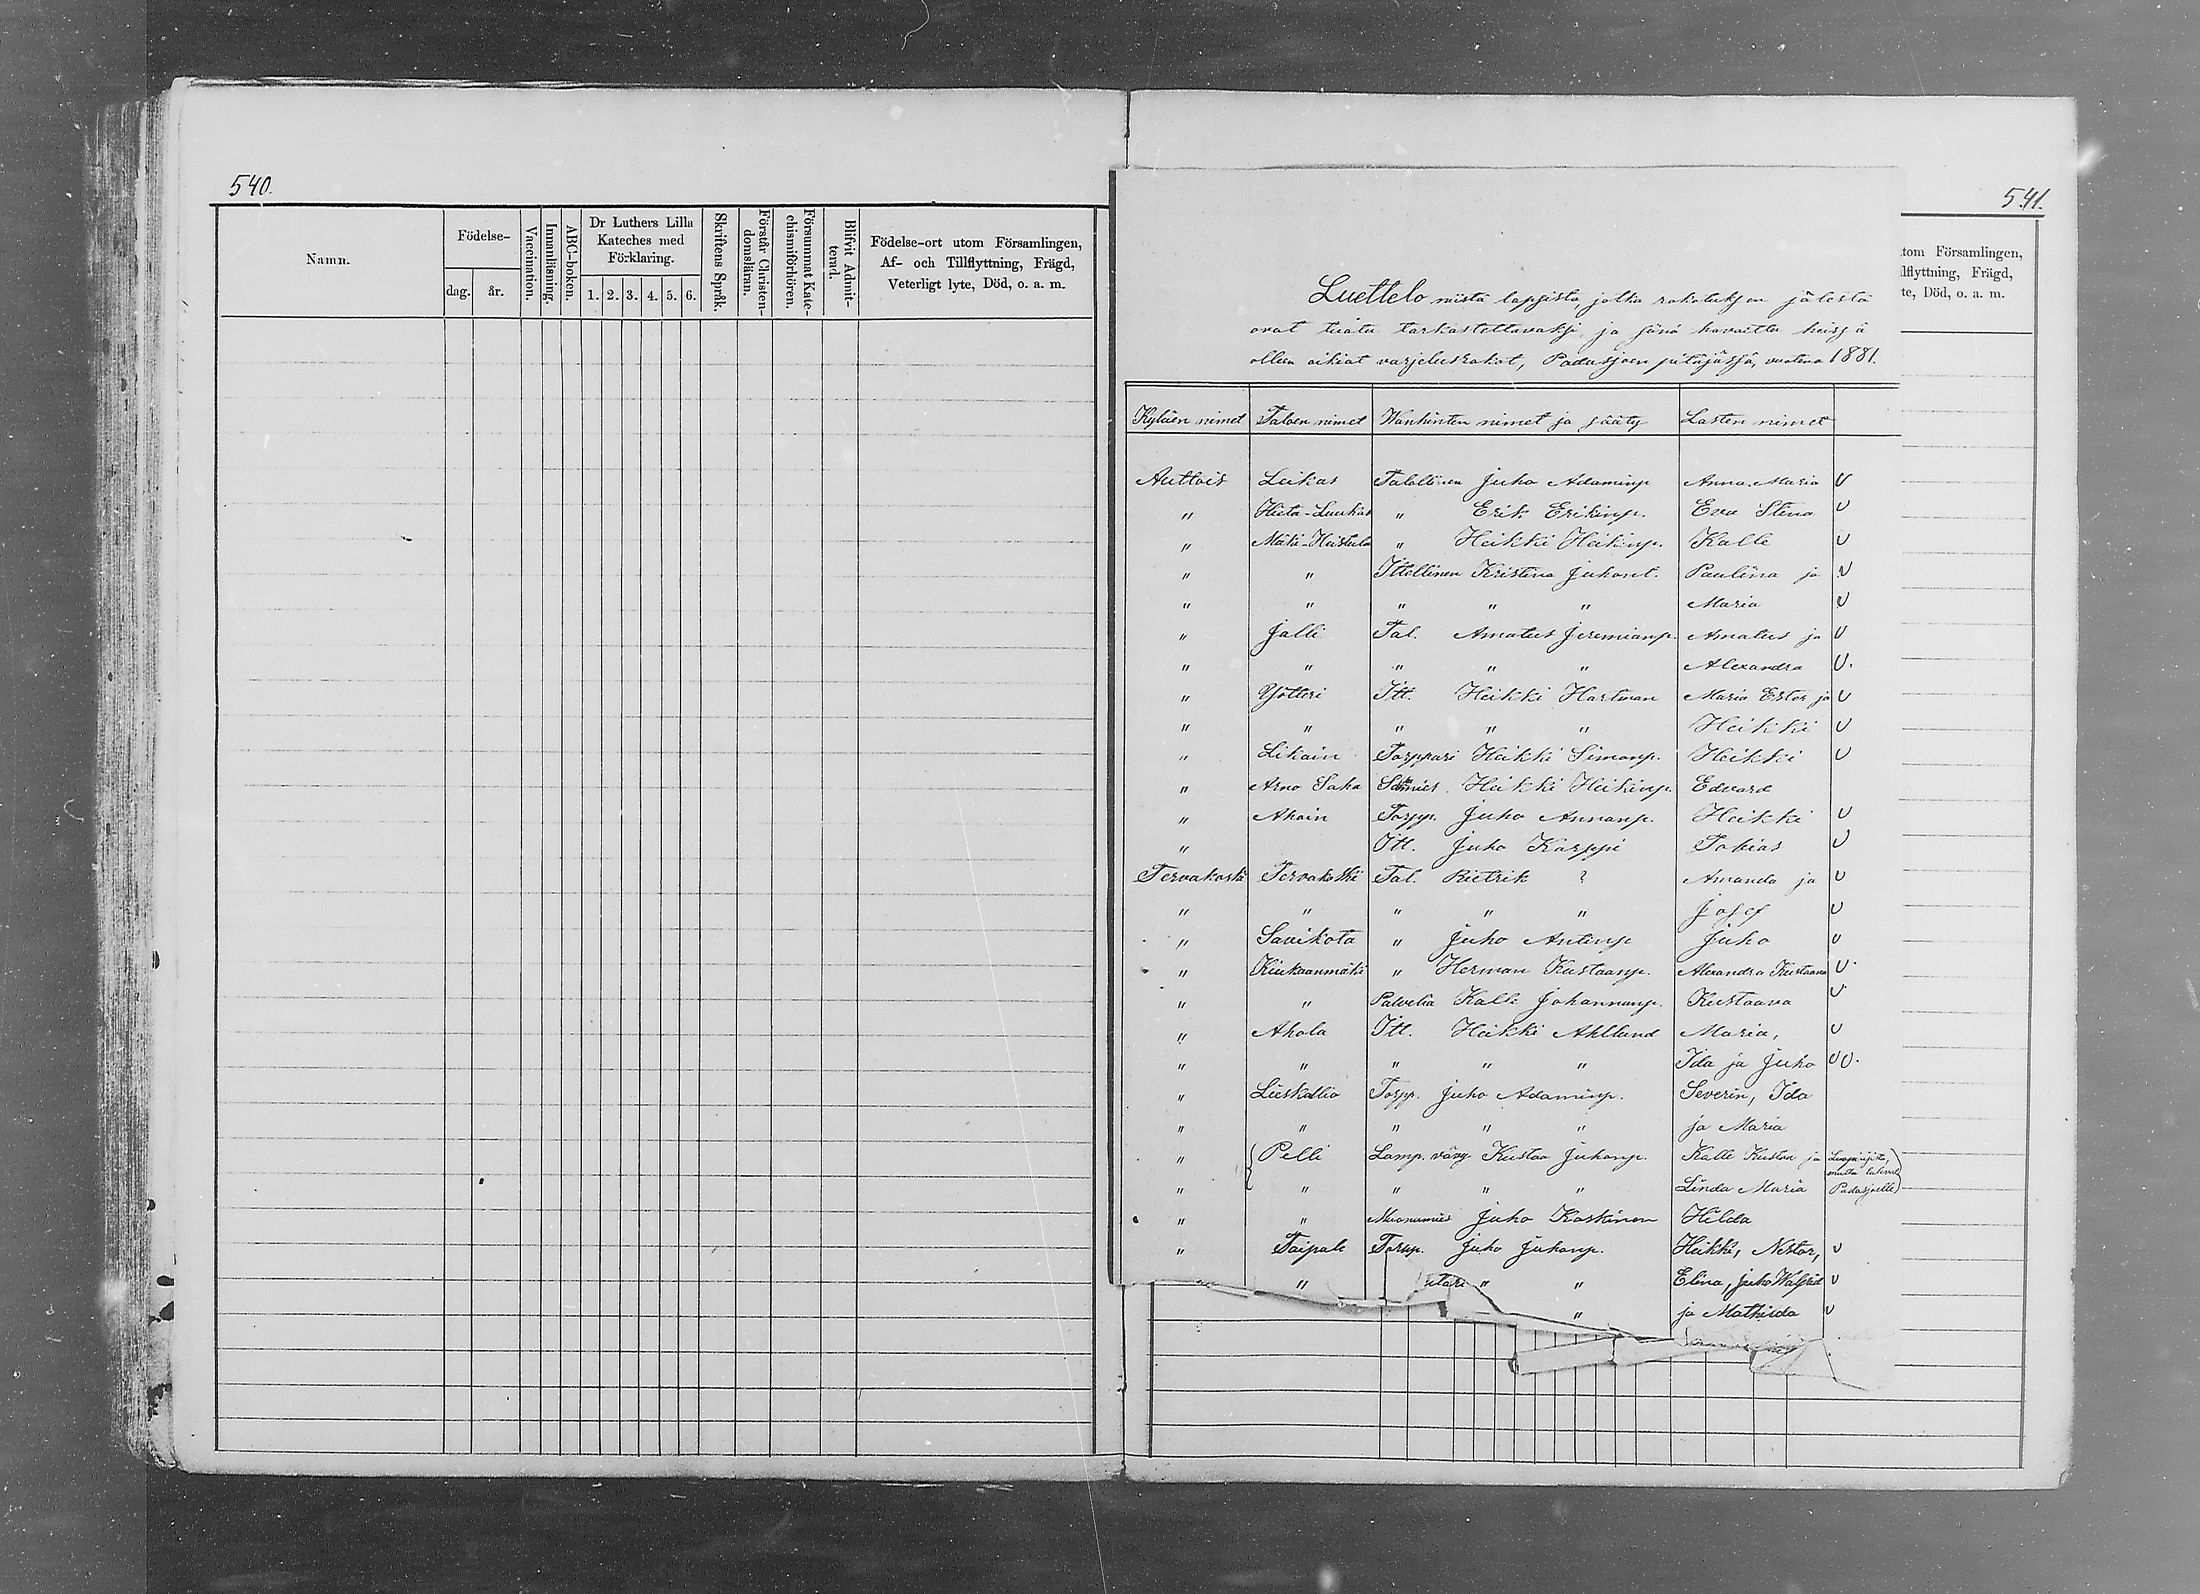 540.
Namn.
Födelse-
dag.
år.
Vaccination.
Innanläsning.
ABC-boken.
Dr Luthers Lilla
Kateches med
Förklaring.
1. 2. 3. 4. 5. 6.
Skriftens Språk.
Förstår Christen-
domsläran.
Försummat Kate-
chismiförhören.
Blifvit Admit-
terad.
Födelse-ort utom Församlingen,
Af- och Tillflyttning, Frägd,
Veterligt lyte, Död, o. a. m.
541.
tom Församlingen,
llflyttning, Frägd,
te, Död, o. a. m.
Luettelo niistä lapsista, jotka rokotuksen jälestä
ovat tuotu tarkastettavaksi ja joissa havaittu heissä
olleen oikiat varjelusrokot, Padasjoen pitäjässä, vuotena 1881.
Kyläen nimet Taloen nimet Wanhinten nimet ja sääty Lasten nimet
Auttois Leikas Talollinen Juho Adaminp Anna Maria U
" Hieta-Luukas " Erik Erikinp. Eva Stina U
" Mäki-Heistula " Heikki Heikinp. Kalle U
" " Itellinen Kristina Juhont. Paulina ja U
" " " " " Maria U
" Jalli Tal. Amatus Jeremianp. Amatus ja U
" " " " " Alexandra U.
" Yötteri Itt. Heikki Hartman Maria Ester ja U
" " " " " Heikki U
" Likain Torppari Heikki Simonp. Heikki U
" Arno Saha Heikki Heikinp. Edvard
" Ahoin Torpp. Juho Annanp. Heikki U
" Itt. Juho Karppi Tobias U
Tervakoski Tervakoski Tal. Rietrik ? Amanda ja U
" " " " " Josef U
" Savikota " Juho Antinp Juho U
" Kiukaanmäki " Herman Kustaanp. Alexandra Kustaava U
" " Palvelia Kalle Johannanp. Kustaava U
" Ahola Itt. Heikki Ahllund Maria, U
" " " " " Ida ja Juho UU.
" Lieskallio Torpp. Juho Adaminp. Severin, Ida
" " " " " ja Maria
" Pelli Lamp. väng Kustaa Juhonp. Kalle Kustaa ja
" " " " " Linda Maria Padasjoelle
" " Muonamies Juho Koskinen Hilda
" Taipale Torpp. Juho Juhonp. Heikki, Nestor, U
" " " Elina, Juho Walfrid U
" ja Mathilda U